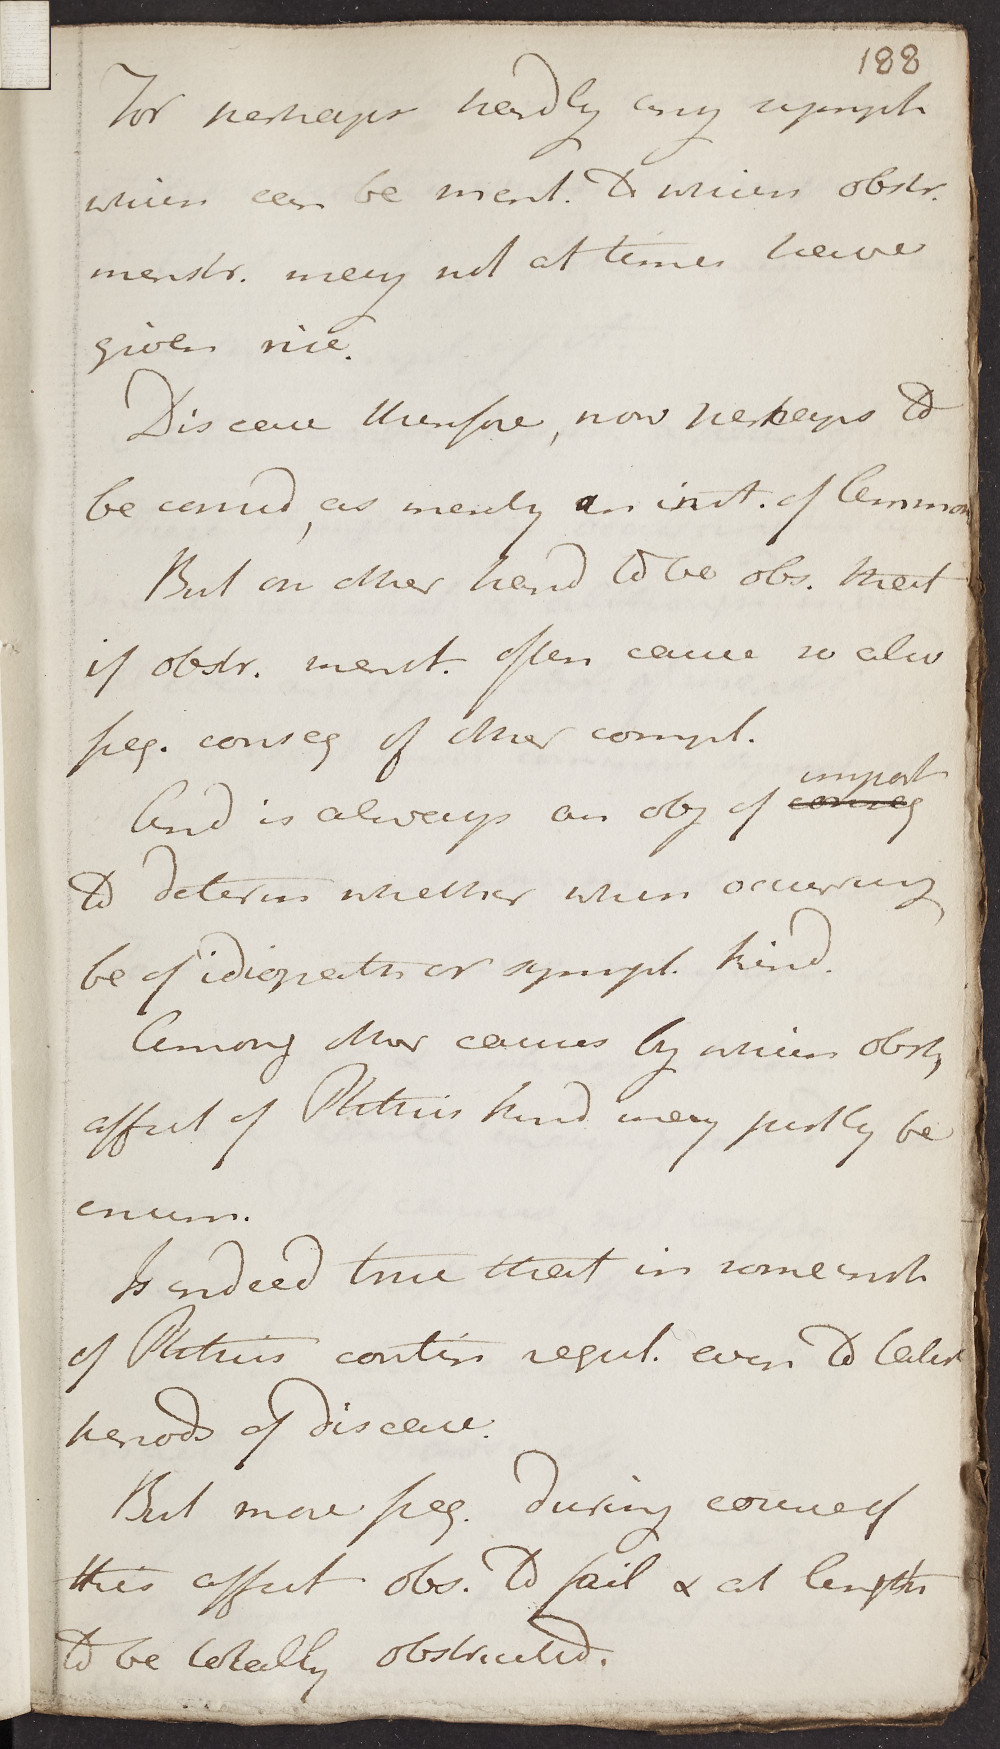 188
For perhaps hardly any symph
which can be ment. to which obstr.
menstr. may not at times have
given rise.
Disease therefore, now perhaps to
be consid, as merely an inst. of Common
But on other hand to be obs. that
if obstr. menst. often cause so also
freq. conseq of other compl.
And is always an obj of conseq import
to determ whether when occurring
be of idiopath or sympt. kind.
Among other causes by which obstr,
affect of Phthisis kind may justly be
enum.
Is indeed true that in some inst
of Phthisis contin regul. even to latest
periods of disease.
But more freq. during course of
this affect obs. to fail & at length
to be totally obstructed.